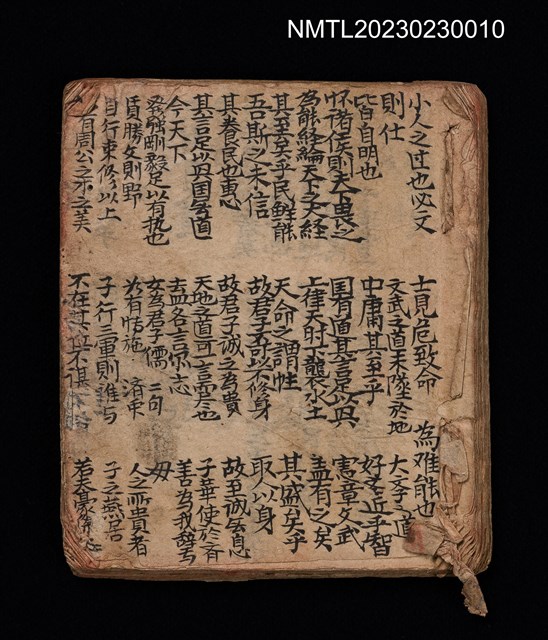 NMTL20230230010
小人之過也必文
則仕
皆自明也
怀諸侯則天下畏之
為能經綸天下之大經
其至矣乎民鮮能
吾斯之未信
其養民也惠
其言足以興国無道
今天下
發強剛毅足以有执也
質勝文則野
自行束修以上
有周公之才之美
士見危致命
文武之道未墜於地
中庸其至乎
国有道其言足以興
上律天时下襲水土
天命之謂性
故君子不可以不修身
故君子誠之為貴
天地之道可一言而尽也
盍各言尔志
女為君子儒 二句
為有博施 濟眾
子行三軍則誰与
不在其位不謀
為难能也
大学之道
好学近乎智
憲章文武
盖有之矣
其盛矣乎
取人以身
故至誠無息
子華使於齐
善為我辞焉
毋
人之所貴者
子之燕居
若夫豪傑